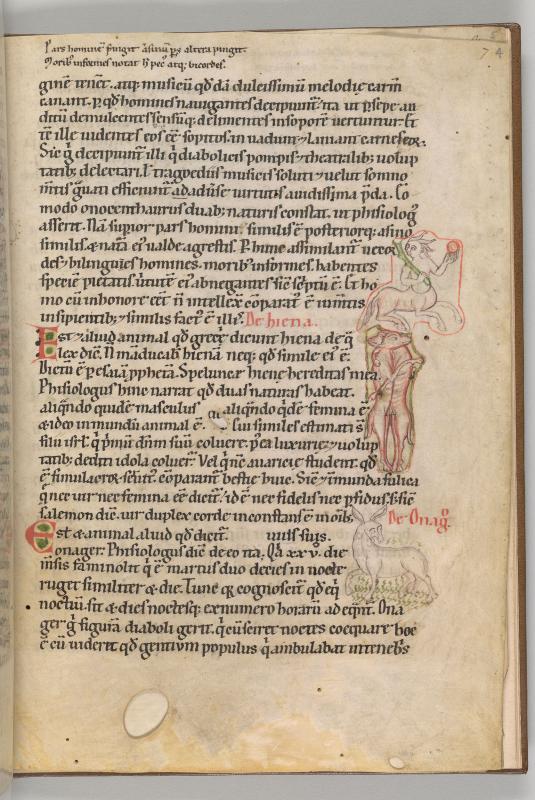 Pars hominē pingit asinū pˢ altera pingit.
Moribꝰ informes notat h̄ pec᷒ atq; bicordes.
7 4
ginē tenet. atq; musicū qd̄dā dulcissimū melodie carm̄
canant. ꝑ qd̄ homines nauigantes decipiunt᷑ ita ut p̄sepe au
ditū demulcentes sensūq; delinientes in soporē uertunt᷑. Et
illę uidentes eos eē sopitos inuadunt ⁊ laniant carnes eoꝝ.
Sic ⁊ decipiunt᷑ illi q̇ diabolicis pompis ⁊ theatralib; uolup
tatib; delectari. ł tragoediis musicis soluti ⁊ uelut somno
mt̄is grauati efficiunt᷑ aduersę uirtutis auidissima p̄da. Co
modo onocenthaurus duab; naturis constat. ut phisiologꝰ
asserit. Nā supior pars homini similis ē posteriorq; asino
similis. ⁊ natā eī ualde agrestis. P̱ hunc assimilant᷑ uecor
des ⁊ bilingues homines. morib; informes. habentes
speciē pietatis. uirtutē eī abnegantes sic sc̄ptū ē. Et ho
mo cū in honore eēt n̄ intellex̄ cōparatꝰ ē iumtīs
insipientib; ⁊ similis factꝰ ē illis. De hiena.
Est ⁊ aliud animal qd̄ grece dicunt hiena de q̇
lex dic̄. N̄ manducab̄ hienā neq; qd̄ simile ei ē.
Dictū ē ꝑ esaiā pphetā. Spelunca hiene hereditas mea.
Phisiologus hinc narrat qd̄ duas naturas habeat.
aliqn̄do quidē masculus aliqn̄do q̇dē femina ē
⁊ ideo inmundū animal ē. Cui similes estimati s̄
filii isrl̄. q̇ p̄mū dn̄m suū coluere. p̱ea luxurie ⁊ uolup
tatib; dediti idola coluer̄. Vel q̇nc auaricie student. qd̄
ē simulacroꝝ seruit᷒. cōparant᷑ bestie huic. Sic ⁊ inmunda
q̇ nec uir nec femina eē dicūt᷑. id ē nec fideles nec pfidus. s; sic
salemon dic̄. uir duplex corde inconstans ē in oīb;
De Onagꝰ.
Est ⁊ animal aliud qd̄ dicit᷑ uiis suis.
onager. Phisiologus dic̄ de eo na. Qd̄ xxv. die
m̄sis faminoht q̇ ē martius duodecies in nocte
ruget similiter ⁊ die. Tunc qꝫ cognoscit᷑ qd̄ eq̇
noctiū sit ⁊ dies noctesq; ex numero horarū adeq̄nt᷑. Ona
ger ḡ figurā diaboli gerit. q̇ cū sciret noctes coequare hoc
ē cū uideret qd̄ gentium populus q̇ ambulabat in teneb̄s